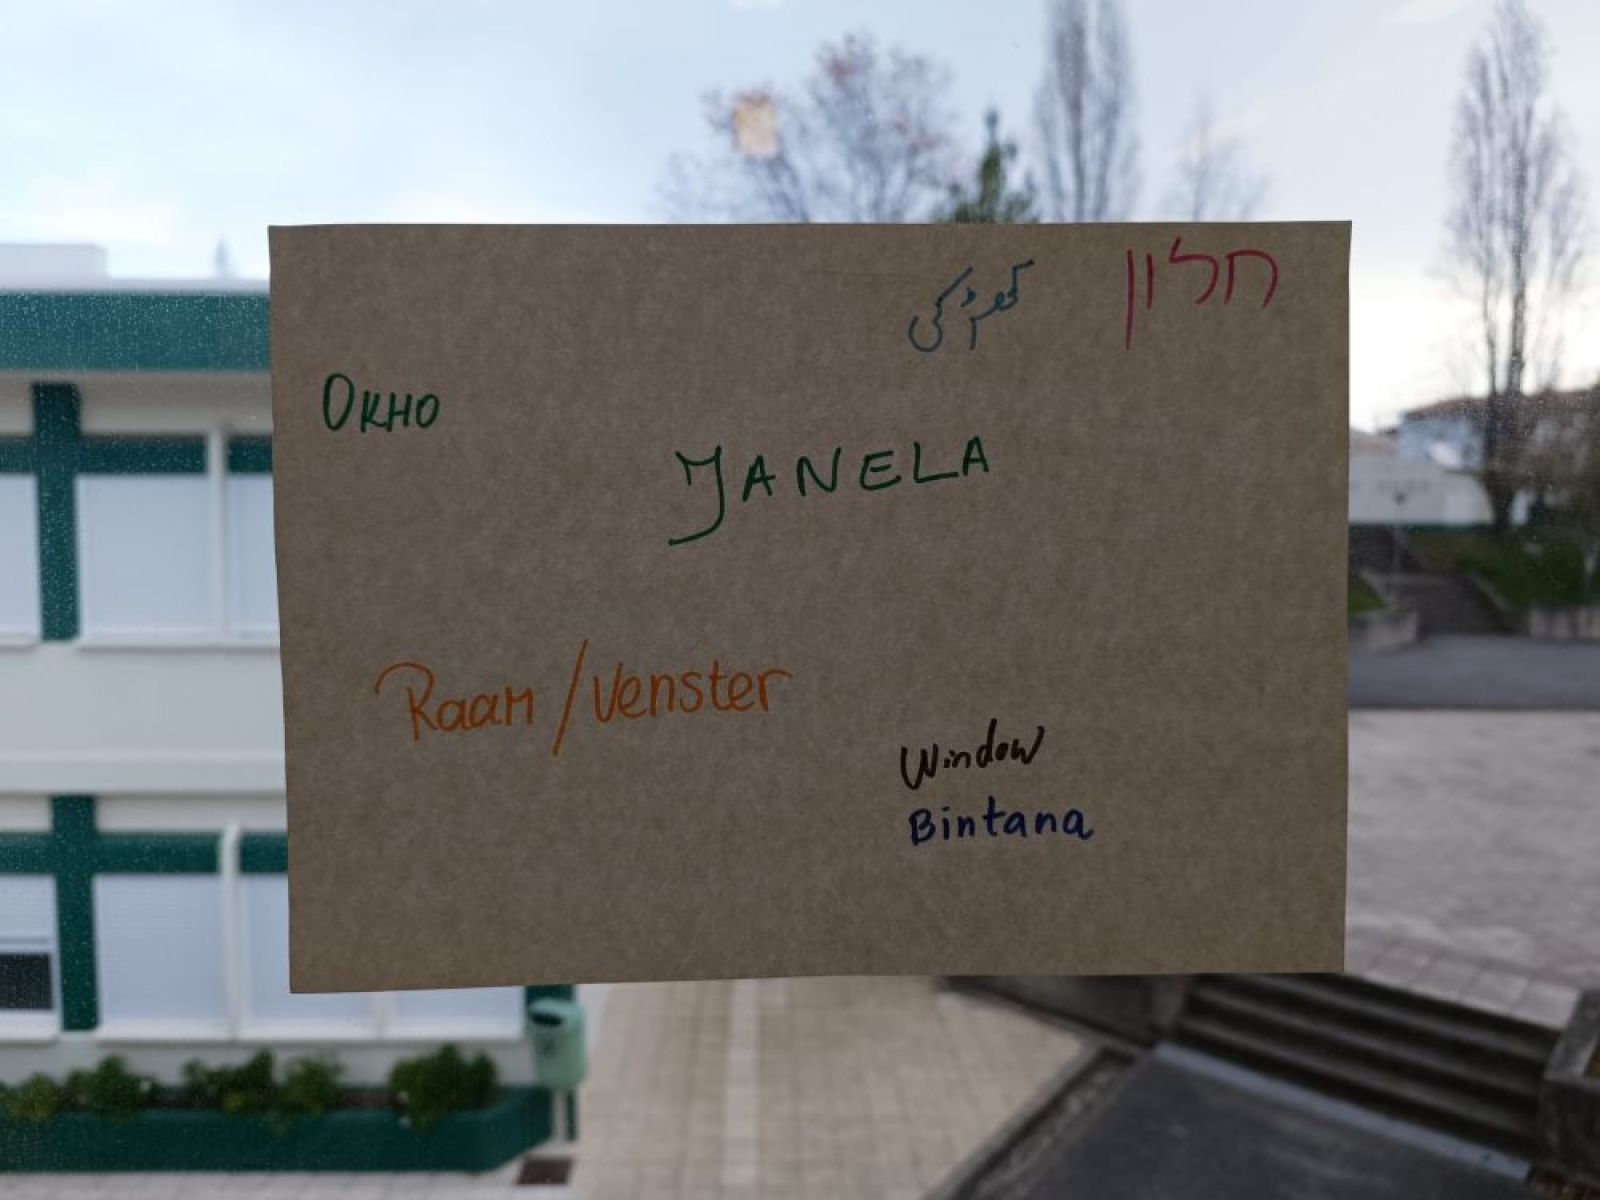 کھڑکی
חלון
Окно
JANELA
Raam/Venster
Window
Bintana